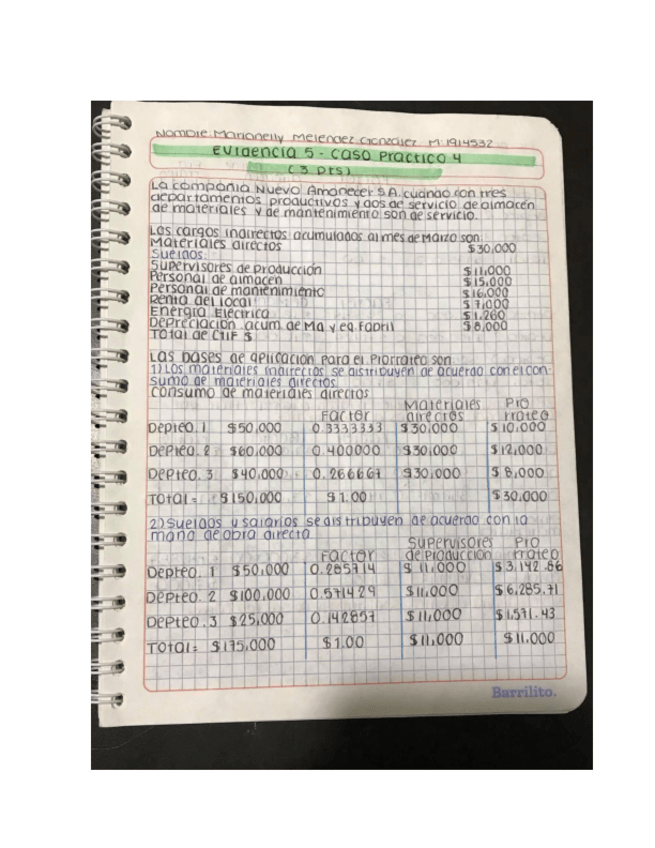 Nombre: Marianelly Melendez González M: 1914532
Evidencia 5 - Caso Practico 4
(3 pts)
La compañia Nuevo Amanecer S.A. cuando con tres
departamentos productivos y dos de servicio de almacen
de materiales y de mantenimiento son de servicio.
Los cargos indirectos acumulados al mes de Marzo son:
Materiales directos $30,000
Sueldos:
Supervisores de producción $11,000
Personal de almacen $15,000
Personal de mantenimiento $16,000
Renta del local $7,000
Energia Electrica $1,260
Depreciación acum de Ma y eq Fabril $8,000
Total de CIF $
Las bases de aplicación para el Prorrateo son:
1) Los materiales indirectos se distribuyen de acuerdo con el con-
sumo de materiales directos
Consumo de materiales directos
Factor Materiales directos Pro rrateo
Depteo. 1 $50,000 0.3333333 $30,000 $10,000
Depteo. 2 $60,000 0.400000 $30,000 $12,000
Depteo. 3 $40,000 0.266667 $30,000 $8,000
Total= $150,000 $1.00 $30,000
2) Sueldos y salarios se distribuyen de acuerdo con la
mano de obra directa
Factor Supervisores de Producción Pro rrateo
Depteo. 1 $50,000 0.285714 $11,000 $3,142.86
Depteo. 2 $100,000 0.571429 $11,000 $6,285.71
Depteo. 3 $25,000 0.142857 $11,000 $1,571.43
Total= $175,000 $1.00 $11,000 $11,000
Barrilito.